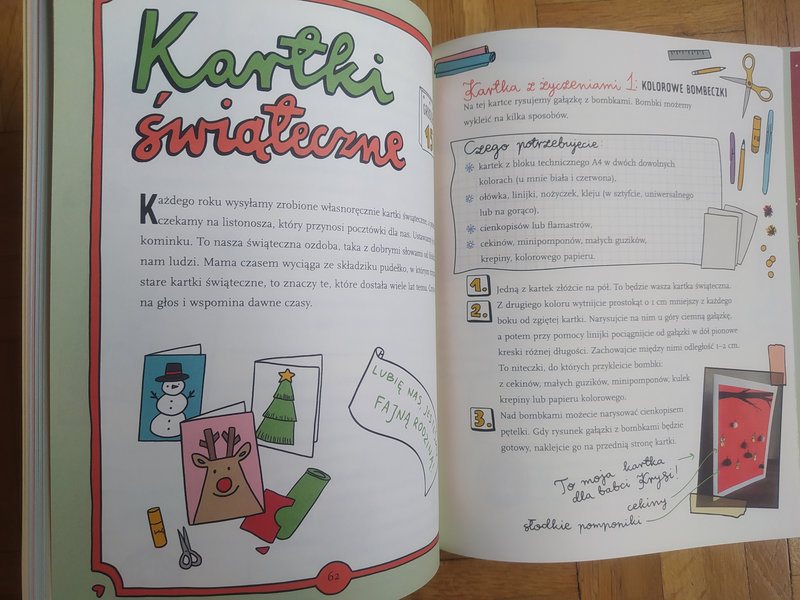 Kartki
świąteczne
Każdego roku wysyłamy zrobione własnoręcznie kartki świąteczne
czekamy na listonosza, który przynosi pocztówki dla nas. Ustawiamy
kominku. To nasza świąteczna ozdoba, taka z dobrymi słowami od
nam ludzi. Mama czasem wyciąga ze składziku pudełko, w którym
stare kartki świąteczne, to znaczy te, które dostała wiele lat temu.
na głos i wspomina dawne czasy.
LUBIĘ NAS,
FAJNĄ RODZINKĄ!
62
Kartka z życzeniami 1: KOLOROWE BOMBECZKI
Na tej kartce rysujemy gałązkę z bombkami. Bombki możemy
wykleić na kilka sposobów.
Czego potrzebujecie:
kartek z bloku technicznego A4 w dwóch dowolnych
kolorach (u mnie biała i czerwona),
ołówka, linijki, nożyczek, kleju (w sztyfcie, uniwersalnego
lub na gorąco),
cienkopisów lub flamastrów,
cekinów, minipomponów, małych guzików,
krepiny, kolorowego papieru.
1. Jedną z kartek złóżcie na pół. To będzie wasza kartka świąteczna.
2. Z drugiego koloru wytnijcie prostokąt o 1 cm mniejszy z każdego
boku od zgiętej kartki. Narysujcie na nim u góry ciemną gałązkę,
a potem przy pomocy linijki pociągnijcie od gałązki w dół pionowe
kreski różnej długości. Zachowajcie między nimi odległość 1–2 cm.
To niteczki, do których przykleicie bombki:
z cekinów, małych guzików, minipomponów, kulek
krepiny lub papieru kolorowego.
3. Nad bombkami możecie narysować cienkopisem
pętelki. Gdy rysunek gałązki z bombkami będzie
gotowy, naklejcie go na przednią stronę kartki.
To moja kartka
dla babci Krysi!
cekiny
słodkie pomponiki